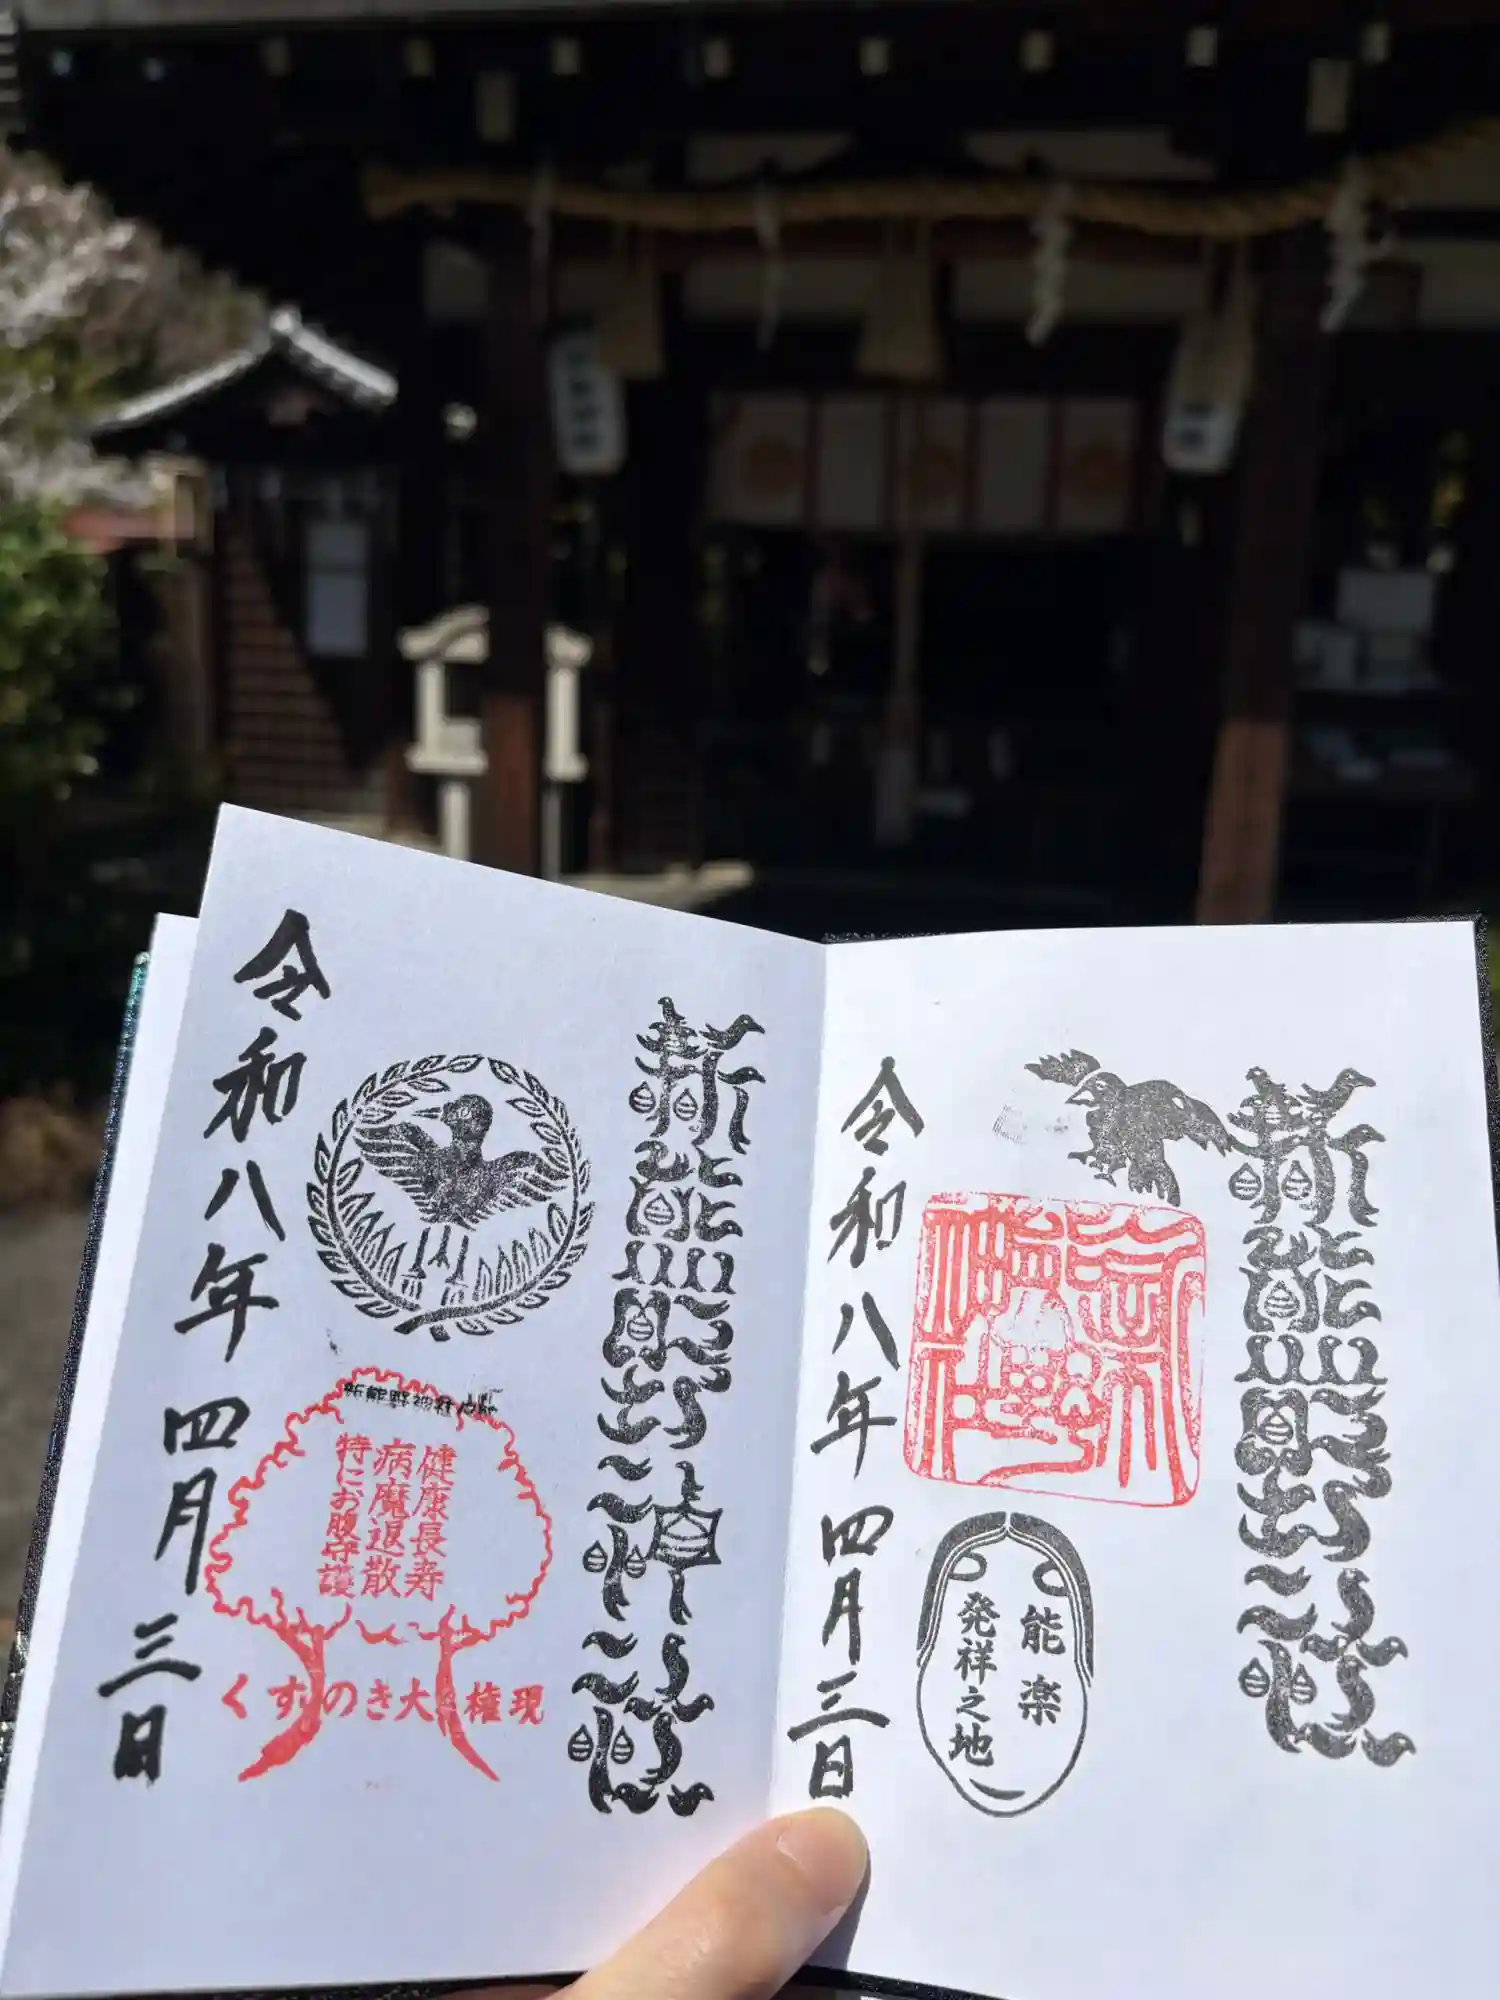 新熊野
令和八年四月三日
能楽
発祥之地
新熊野神社
令和八年四月三日
新熊野神社
健康長寿
病魔退散
特にお腹守護
くすのき大権現